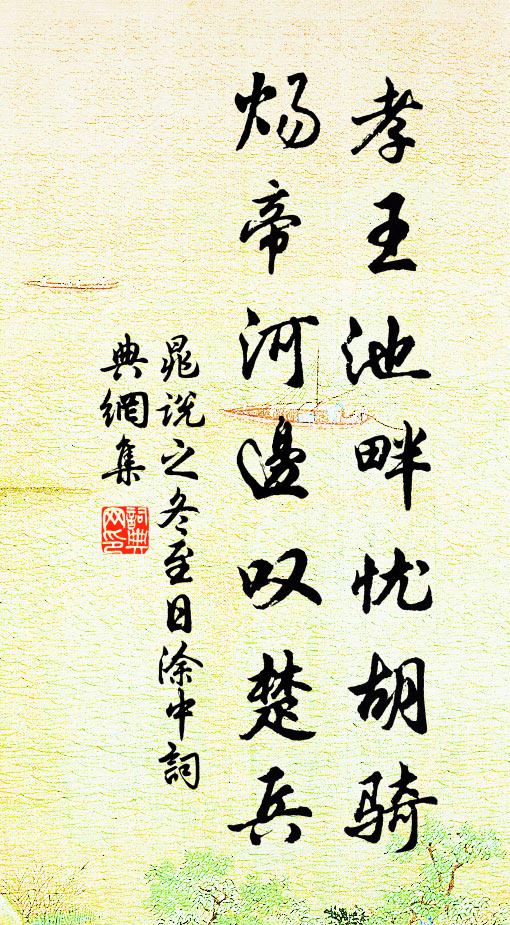 孝王池畔忧胡骑
炀帝河邊叹楚兵
晁说之冬至日涂中詞
典網集
詞典
网印